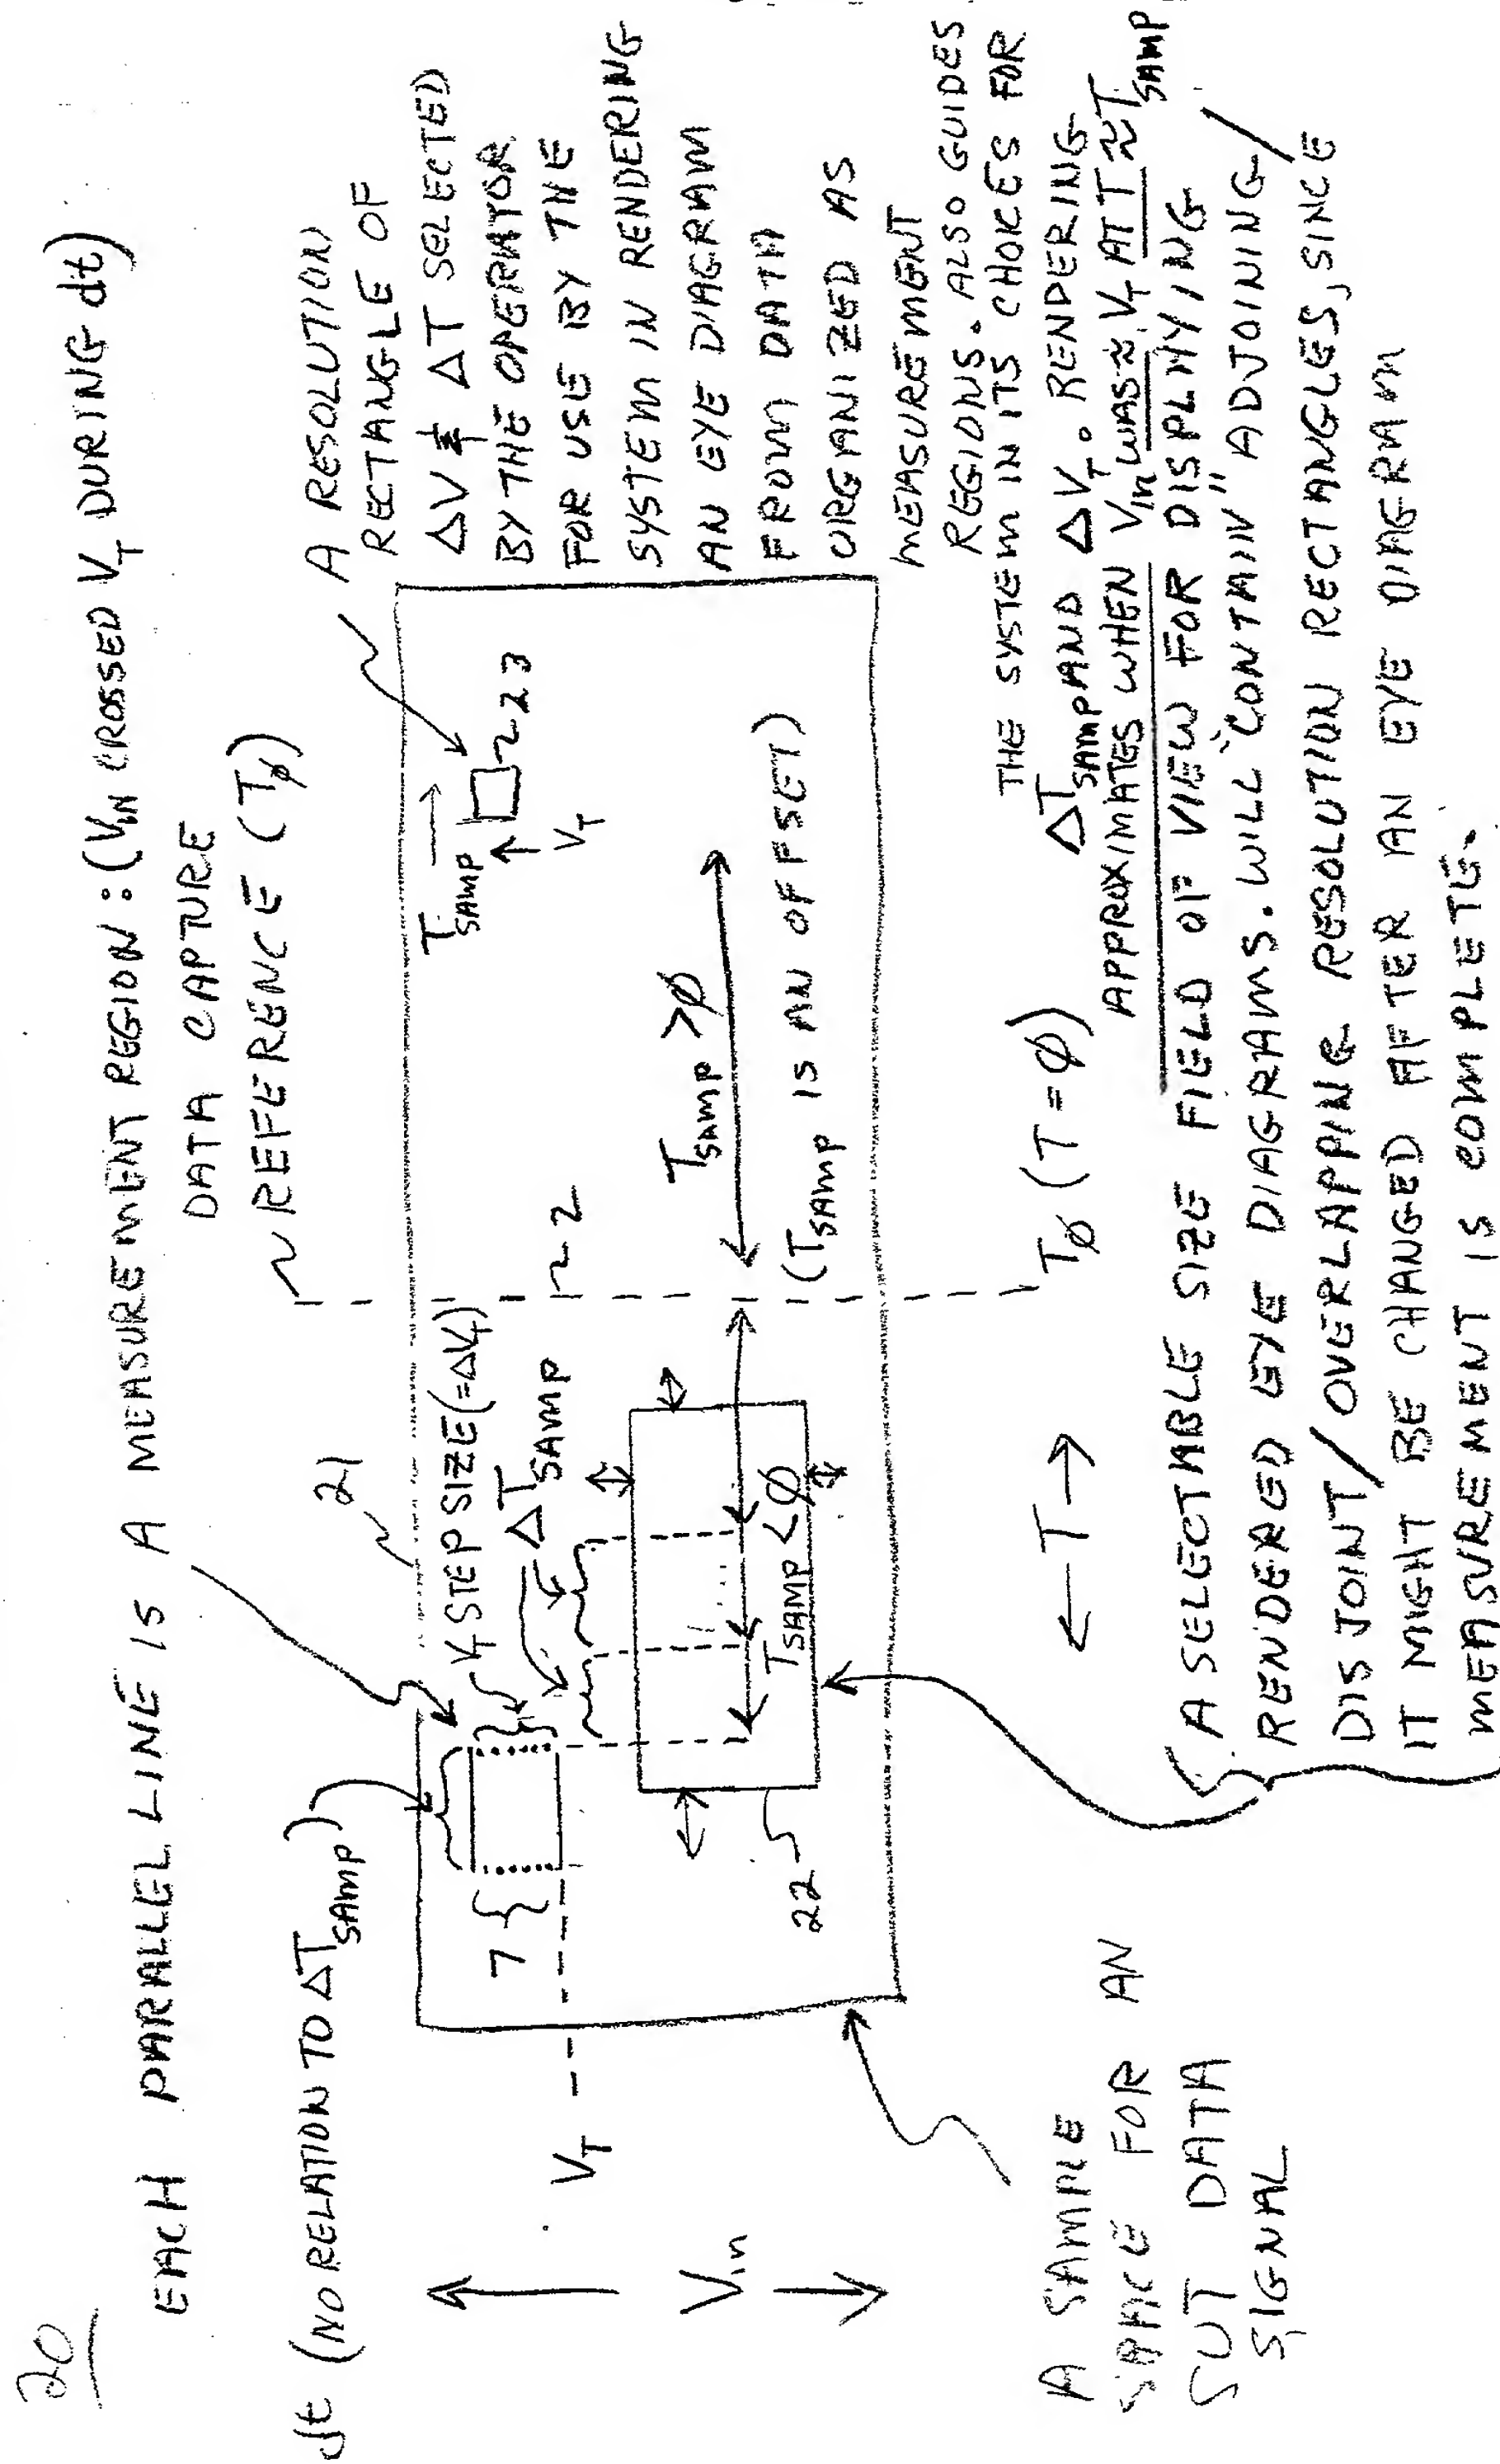 20
EACH PARALLEL LINE IS A MEASUREMENT REGION: (V_IN CROSSED V_T DURING dt)
dt (NO RELATION TO ΔT_SAMP)
DATA CAPTURE
REFERENCE (Tφ)
21
V_T STEP SIZE (=ΔV_T)
ΔT_SAMP
2
7
V_T
V_in
22
T_SAMP < φ
T_SAMP > φ
(T_SAMP IS AN OFFSET)
T_SAMP
V_T
23
A RESOLUTION
RECTANGLE OF
ΔV & ΔT SELECTED
BY THE OPERATOR
FOR USE BY THE
SYSTEM IN RENDERING
AN EYE DIAGRAM
FROM DATA
ORGANIZED AS
MEASUREMENT
REGIONS. ALSO GUIDES
THE SYSTEM IN ITS CHOICES FOR
ΔT_SAMP AND ΔV_T. RENDERING
APPROXIMATES WHEN V_in WAS ≈ V_T AT T ≈ T_SAMP
← T →
Tφ (T = φ)
A SAMPLE
SPACE FOR AN
SUT DATA
SIGNAL
A SELECTABLE SIZE FIELD OF VIEW FOR DISPLAYING
RENDERED EYE DIAGRAMS. WILL "CONTAIN" ADJOINING/
DISJOINT/OVERLAPPING RESOLUTION RECTANGLES, SINCE
IT MIGHT BE CHANGED AFTER AN EYE DIAGRAM
MEASUREMENT IS COMPLETE.